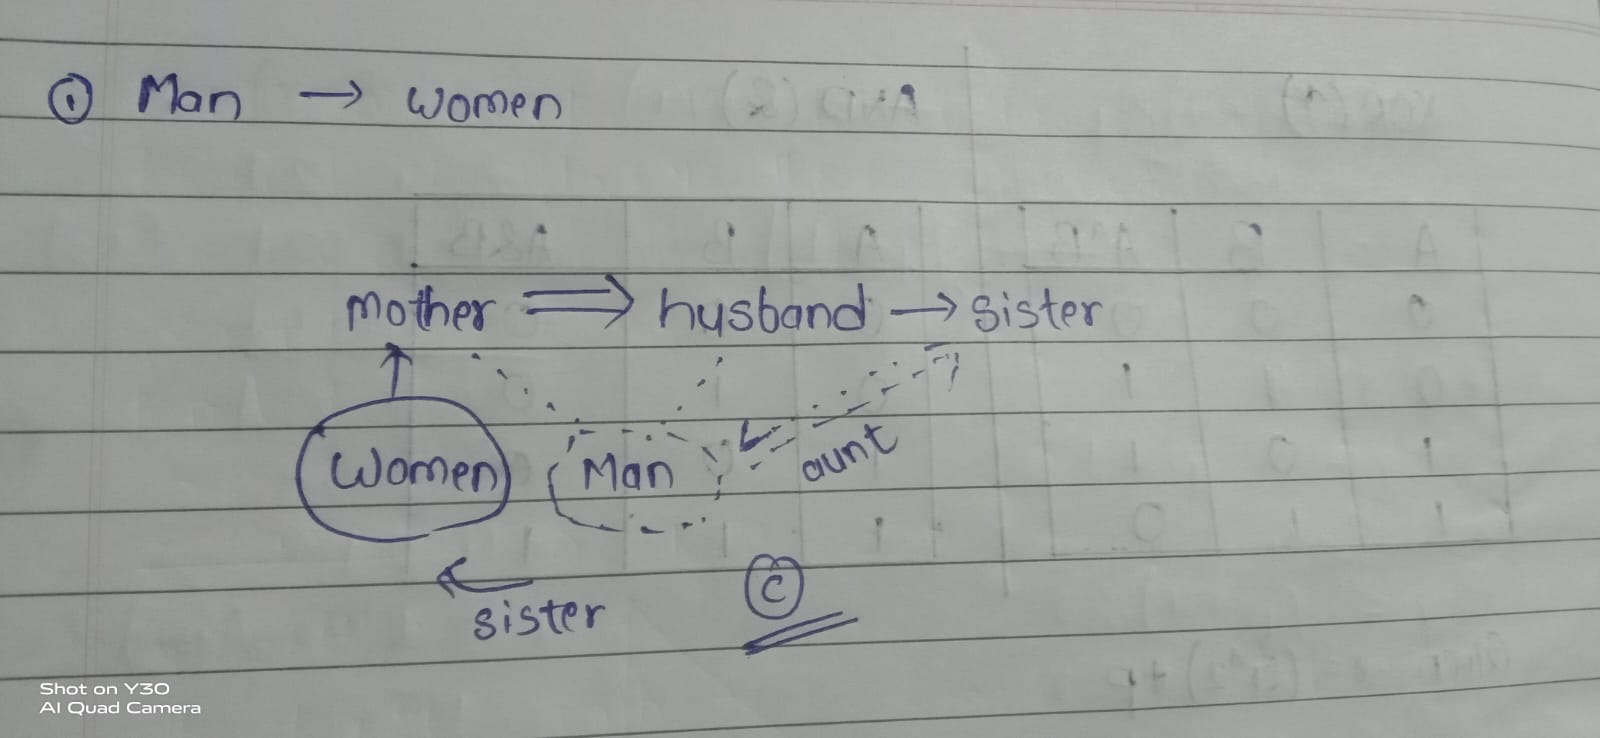 ① Man → women
mother ⟹ husband → sister
Women Man aunt
sister ⓒ
Shot on Y30
AI Quad Camera